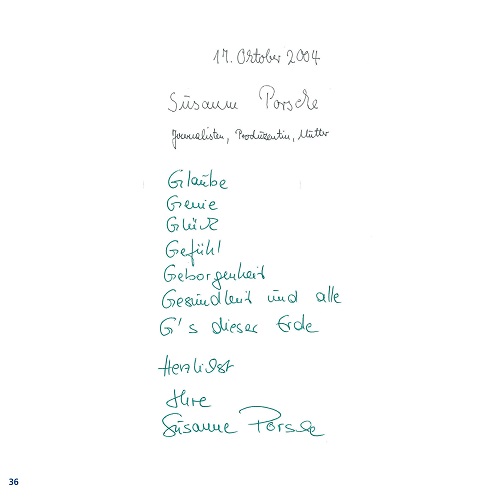 17. Oktober 2004
Susanne Porsche
Journalistin, Produzentin, Mutter
Glaube
Genie
Glück
Gefühl
Geborgenheit
Gesundheit und alle
G's dieser Erde
Herzlichst
Ihre
Susanne Porsche
36